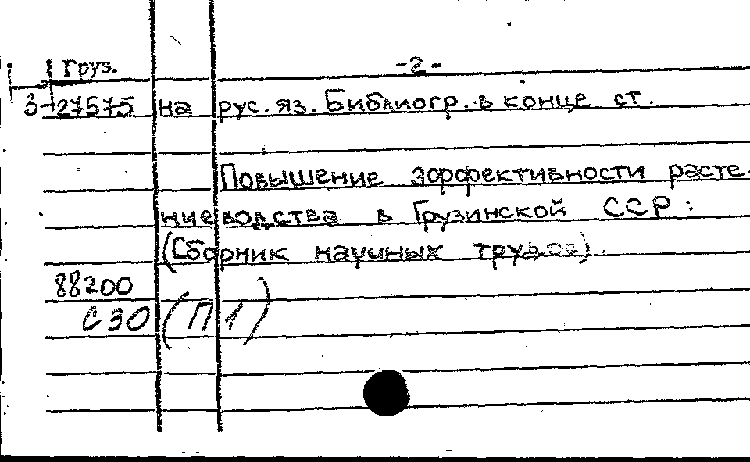 Груз. -2-
3-27575 на рус. яз. Библиогр. в конце ст.
Повышение эффективности расте-
ниеводства в Грузинской ССР:
(Сборник научных трудов).
88200
С30 (П1)